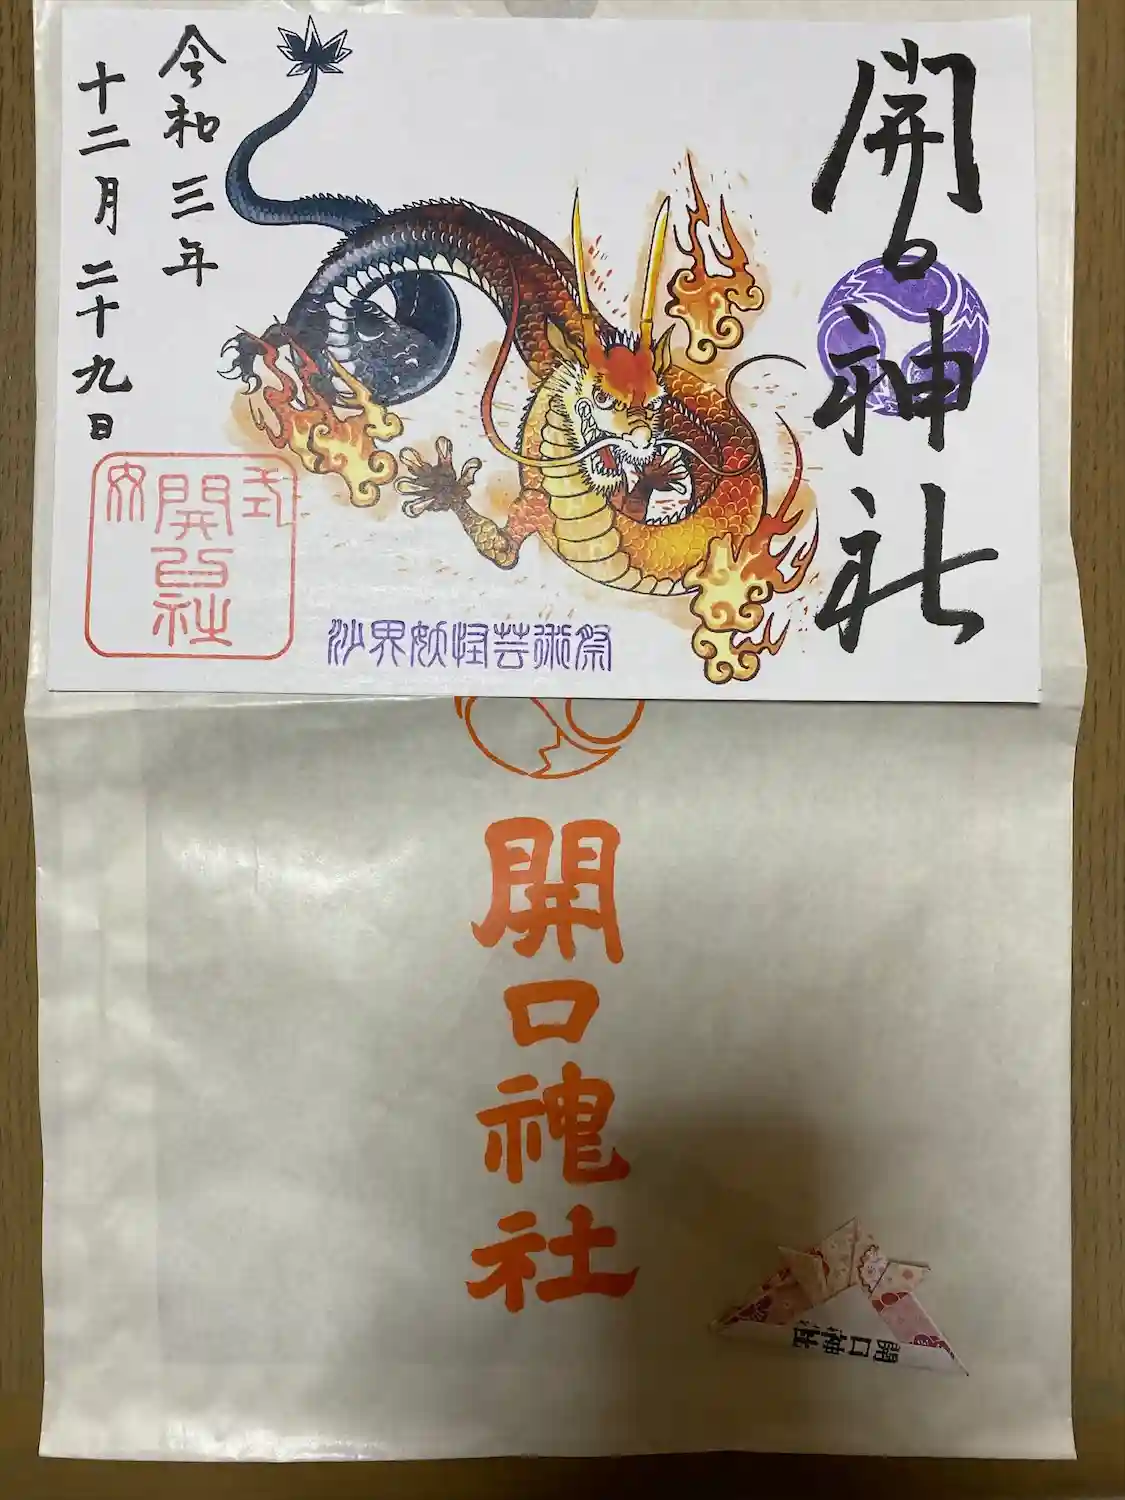 開口神社
令和三年
十二月二十九日
式内
開口社
沙界妖怪芸術祭
開口神社
開口神社